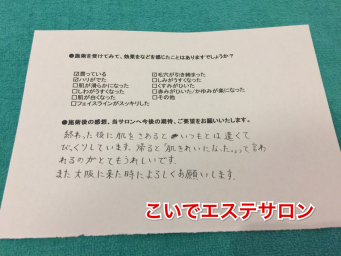 ●施術を受けてみて、効果をなどを感じたことはありますでしょうか？
☑潤っている ☑毛穴が引き締まった
☑ハリがでた □しみがうすくなった
□肌が滑らかになった □くすみがひいた
□しわがうすくなった □赤みがひいた/かゆみが楽になった
□肌が白くなった □その他
□フェイスラインがスッキリした
●施術後の感想、当サロンへ今後の期待、ご要望をお願いいたします。
終わった後に肌をさわるといつもとは違くて
びっくりしています。帰ると「肌きれいになった。」って言わ
れるのがとてもうれしいです。
また大阪に来た時によろしくお願いします。
こいでエステサロン